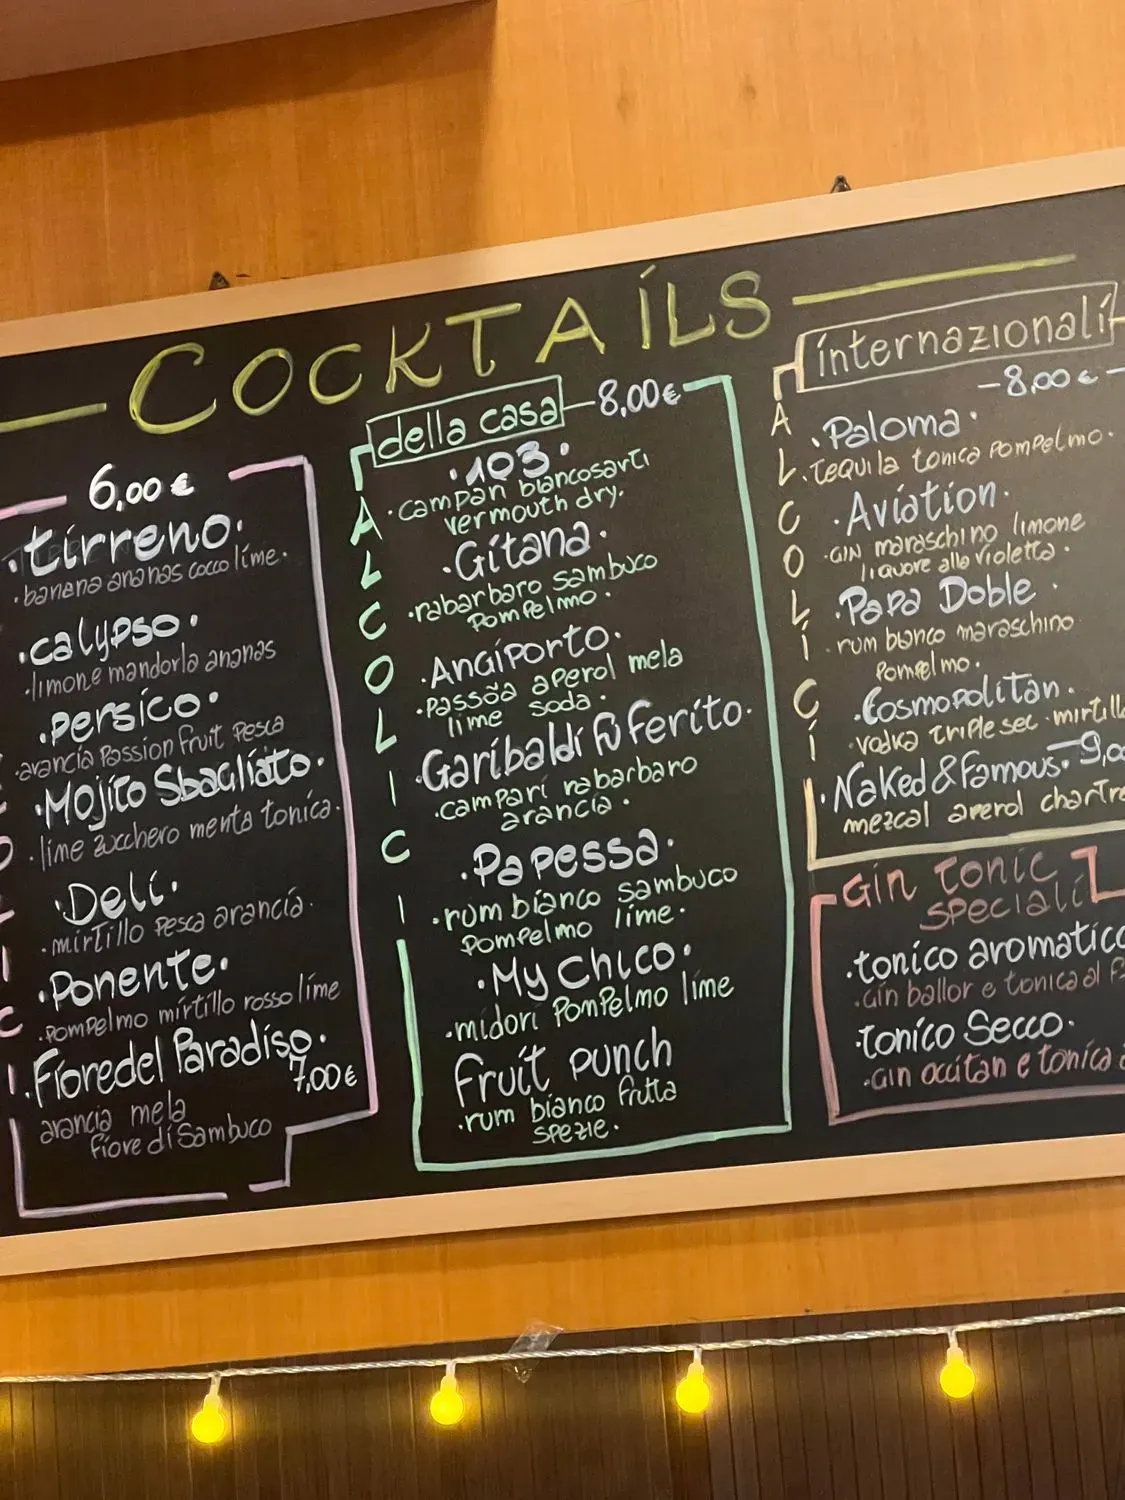 COCKTAILS
6,00 €
• tirreno.
• banana ananas cocco lime.
• calypso.
• limone mandorla ananas
• persico.
• arancia Passion fruit pesca
• Mojito Sbagliato.
• lime zucchero menta tonica.
• Deli.
• mirtillo pesca arancia.
• Ponente.
• pompelmo mirtillo rosso lime
• Fiore del Paradiso.
7,00 €
arancia mela
fiore di Sambuco
della casa – 8,00 €
ALCOLICI
• 103.
• campari biancosarti
vermouth dry.
• Gitana.
• rabarbaro sambuco
Pompelmo.
• Angiporto.
• passoã aperol mela
lime soda.
• Garibaldi fu Ferito.
• campari rabarbaro
arancia.
• Papessa.
• rum bianco sambuco
pompelmo lime.
• My Chico.
• midori Pompelmo lime
fruit punch
• rum bianco frutta
spezie.
internazionali
– 8,00 € –
ALCOLICI
• Paloma.
• Tequila tonica pompelmo.
• Aviation.
• GIN maraschino limone
liquore alla violetta.
• Papa Doble.
• rum bianco maraschino
Pompelmo.
• Cosmopolitan.
• vodka triple sec mirtill
• Naked & famous. – 9,0
mezcal aperol chartre
GIN TONIC
SPECIALI
• tonico aromatico
• Gin ballor e tonica al
• tonico Secco.
• GIN occitan e tonica